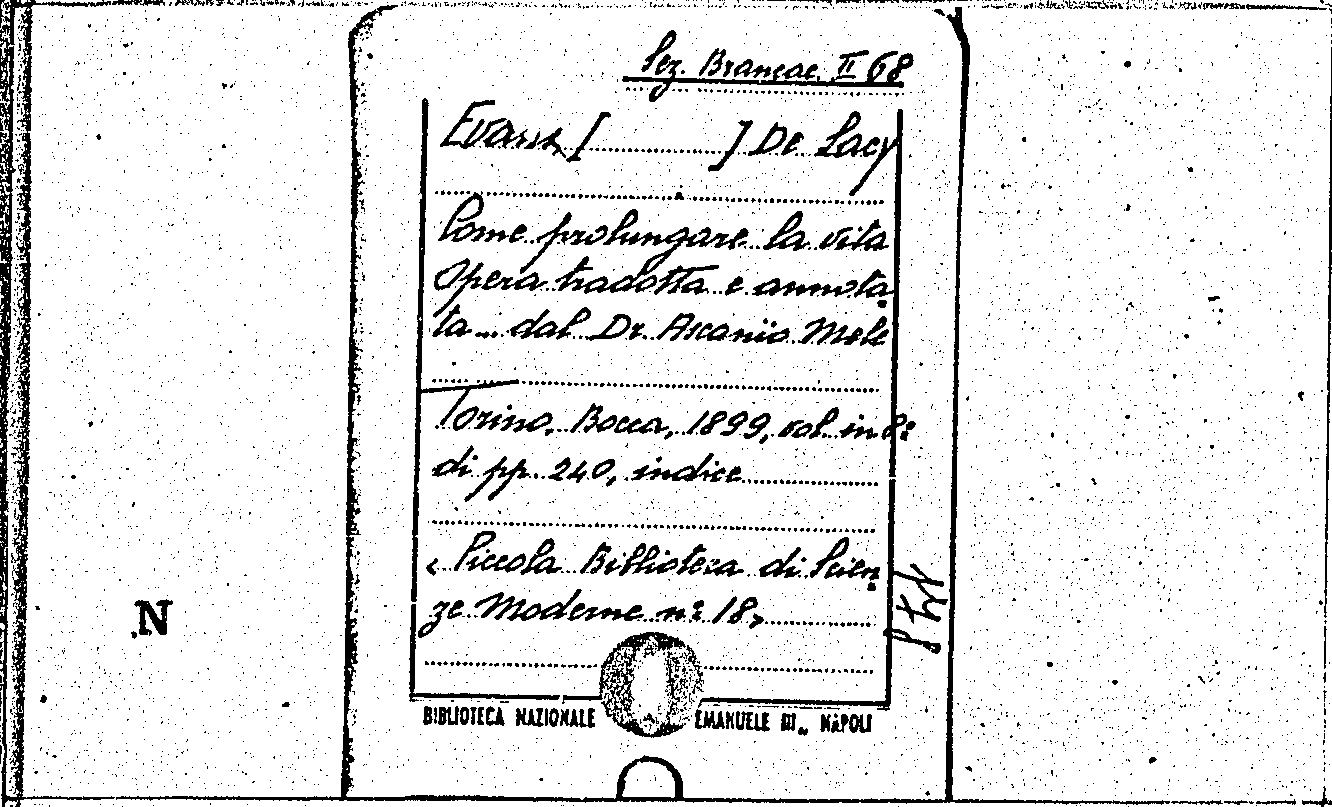 Sez. Brancac. II 68
Evans [ ] De Lacy
Come prolungare la vita
Opera tradotta e annota
ta ... dal Dr. Ascanio Mele
Torino, Bocca, 1899, vol. in 8º
di pp. 240, indice
« Piccola Biblioteca di Scien
ze Moderne nº 18 »
BIBLIOTECA NAZIONALE EMANUELE III „ NAPOLI
N